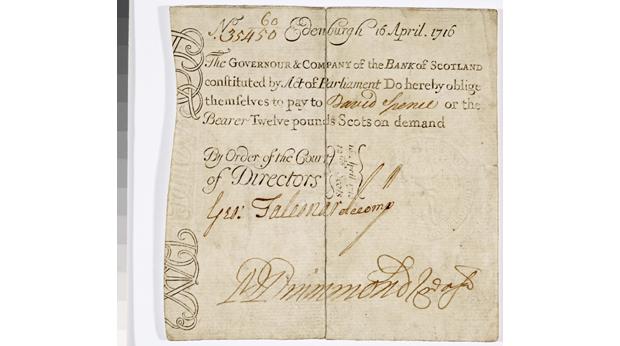 60
No 35450 Edenburgh 16 April. 1716
The GOVERNOUR & COMPANY of the BANK of SCOTLAND
constituted by Act of Parliament Do hereby oblige
themselves to pay to David Spence or the
Bearer Twelve pounds Scots on demand
By Order of the Court
of Directors
Geo:
Drummond